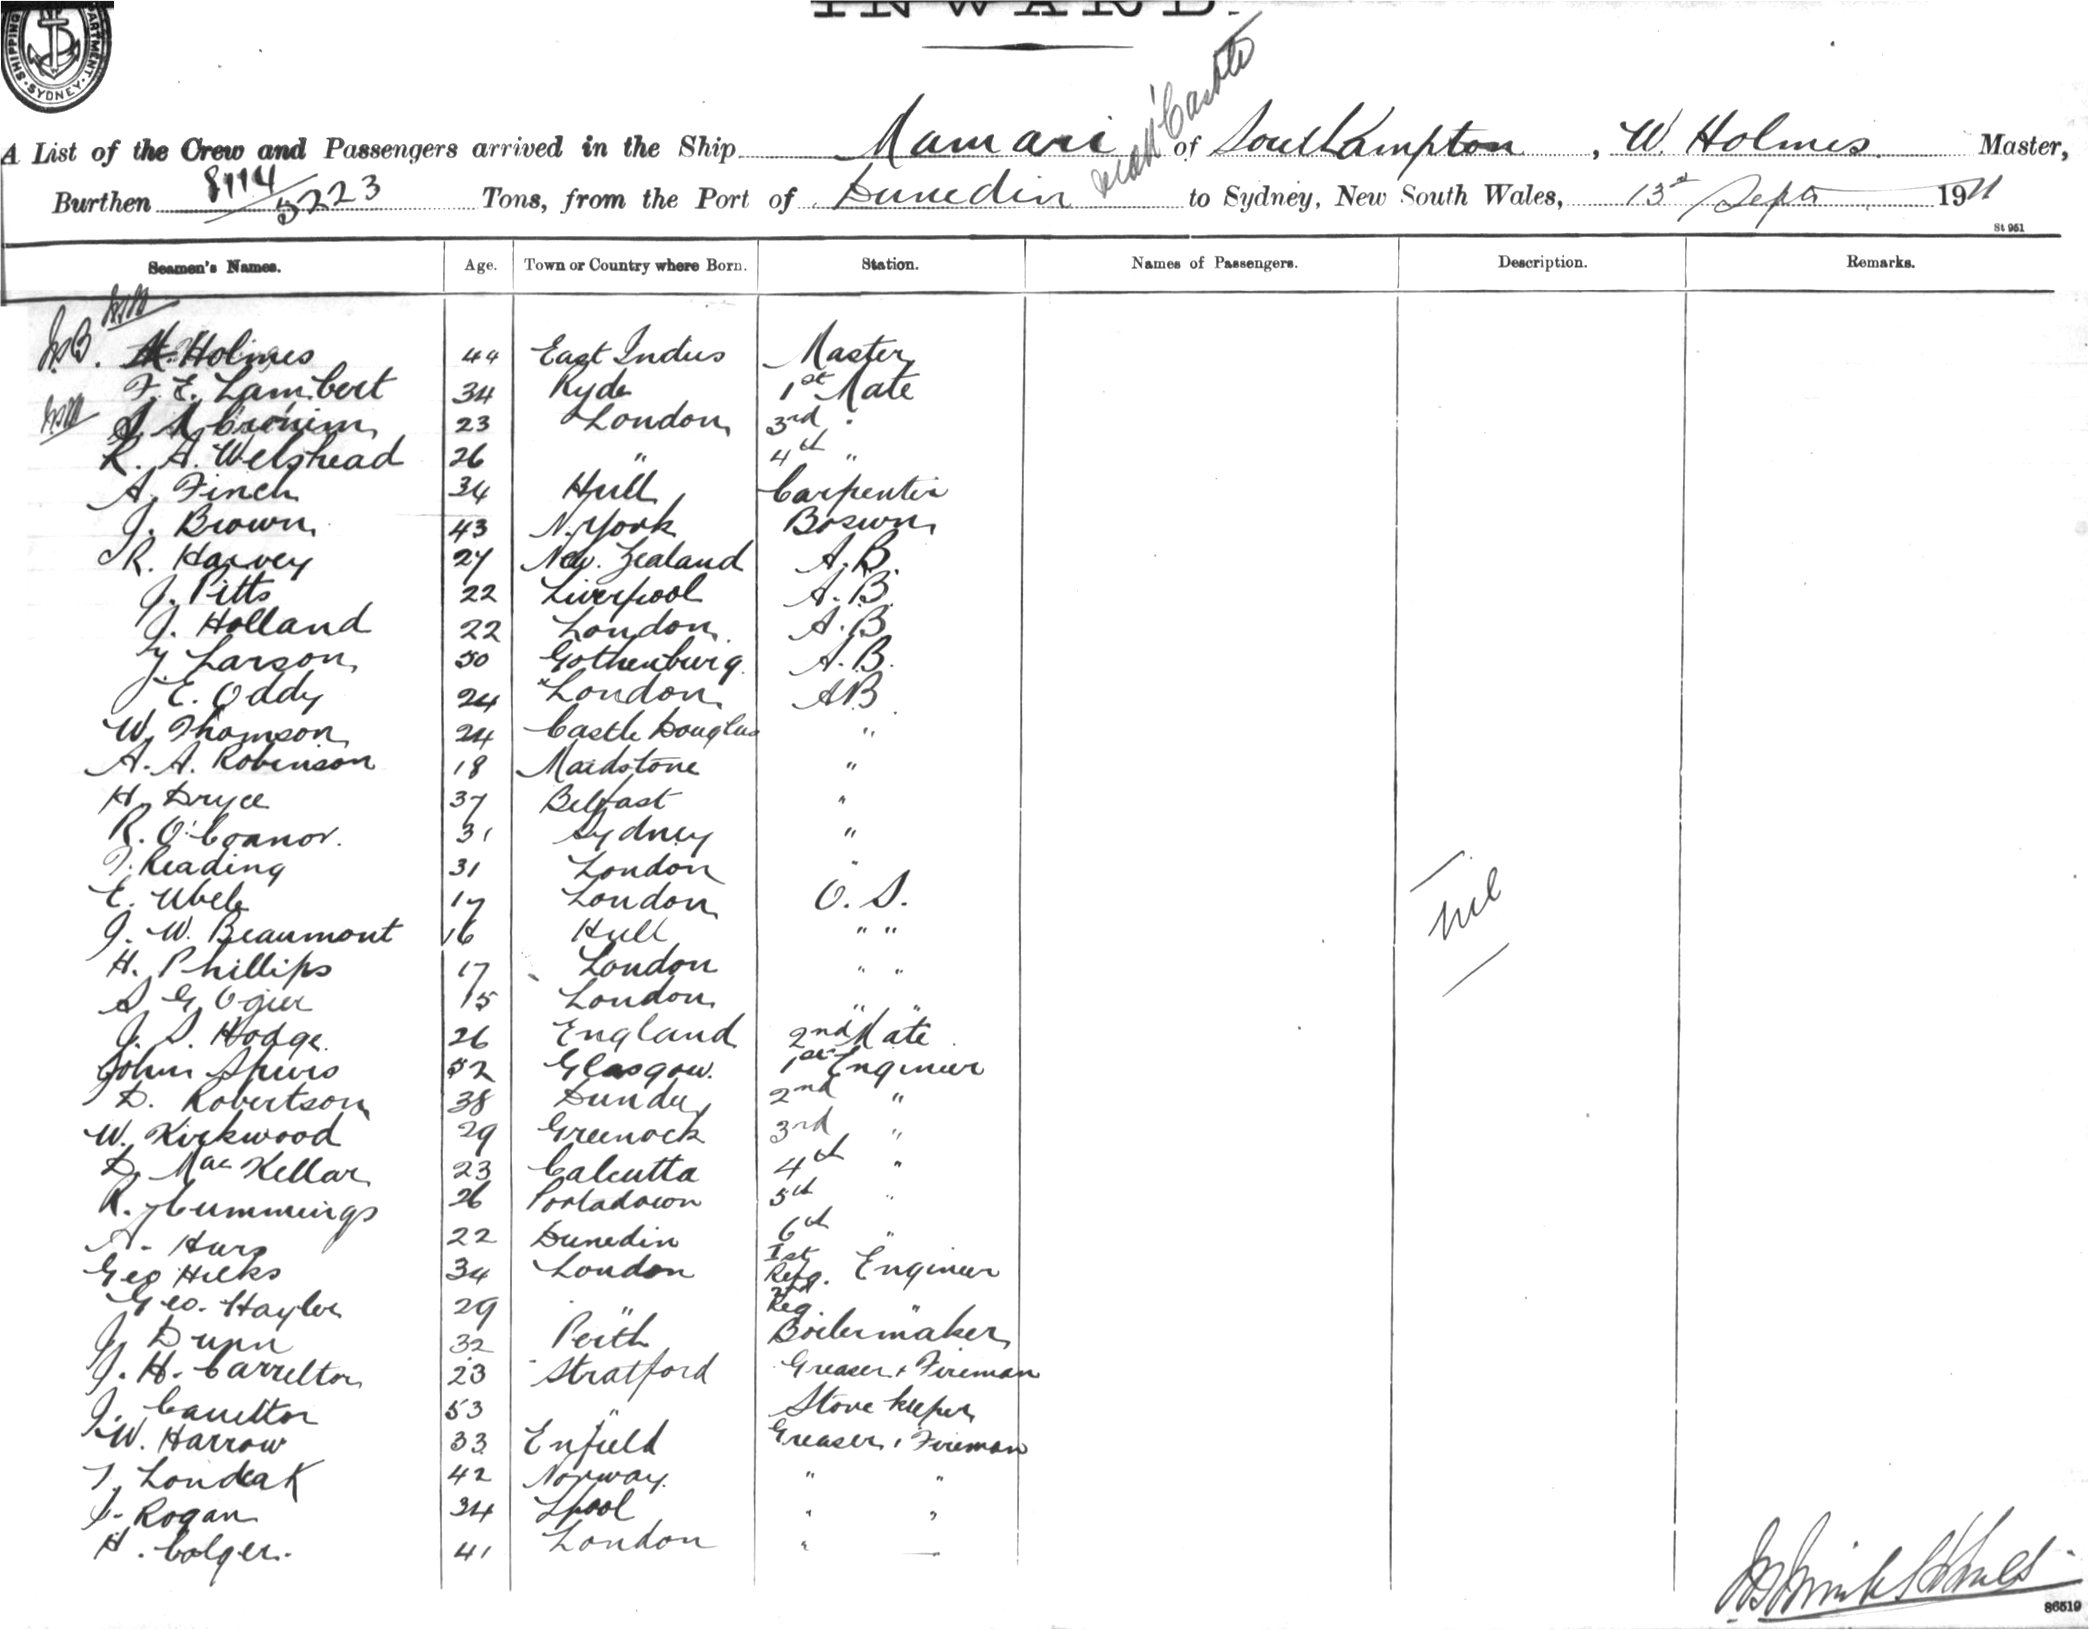 INWARD.
SHIPPING DEPARTMENT. SYDNEY
A List of the Crew and Passengers arrived in the Ship Mamari of Southampton, W. Holmes Master,
Burthen 8114/5223 Tons, from the Port of Dunedin to Sydney, New South Wales, 13th Septr 1911
St 951
Seamen's Names. Age. Town or Country where Born. Station. Names of Passengers. Description. Remarks.
Holmes 44 East Indies Master
F. E. Lambert 34 Ryde 1st Mate
23 London 3rd "
R. A. Welshead 26 " 4th "
A. Finch 34 Hull Carpenter
J. Brown 43 N. York Boswn
R. Harvey 27 New. Zealand A.B.
J. Pitts 22 Liverpool A.B.
J. Holland 22 London A.B
J. Larson 50 Gothenburg. A.B.
E. Oddy 24 London AB
W. Thomson 24 Castle Douglas "
A. A. Robinson 18 Maidstone "
H. Dryce 37 Belfast "
R. O'Connor. 31 Sydney "
F. Reading 31 London "
E. Ubele 17 London O. S.
J. W. Beaumont 16 Hull " "
H. Phillips 17 London " "
S G Ogier 15 London " "
J. S. Hodge 26 England 2nd Mate
John Spiers 52 Glasgow. 1st Engineer
D. Robertson 38 Dundee 2nd "
W. Kirkwood 29 Greenock 3rd "
D. MacKellar 23 Calcutta 4th "
R. Cummings 26 Portadown 5th "
A. 22 Dunedin 6th "
Geo Hicks 34 London 1st Refg. Engineer
Geo. Hayler 29 " 2nd Reg. "
J. Dunn 32 Perth Boilermaker
J. H. Carrelton 23 Stratford Greaser & Fireman
J. 53 " Store keeper
W. Harrow 33 Enfield Greaser & Fireman
42 Norway. " "
J. Rogan 34 Lpool " "
H. Colger. 41 London "
nil
86519